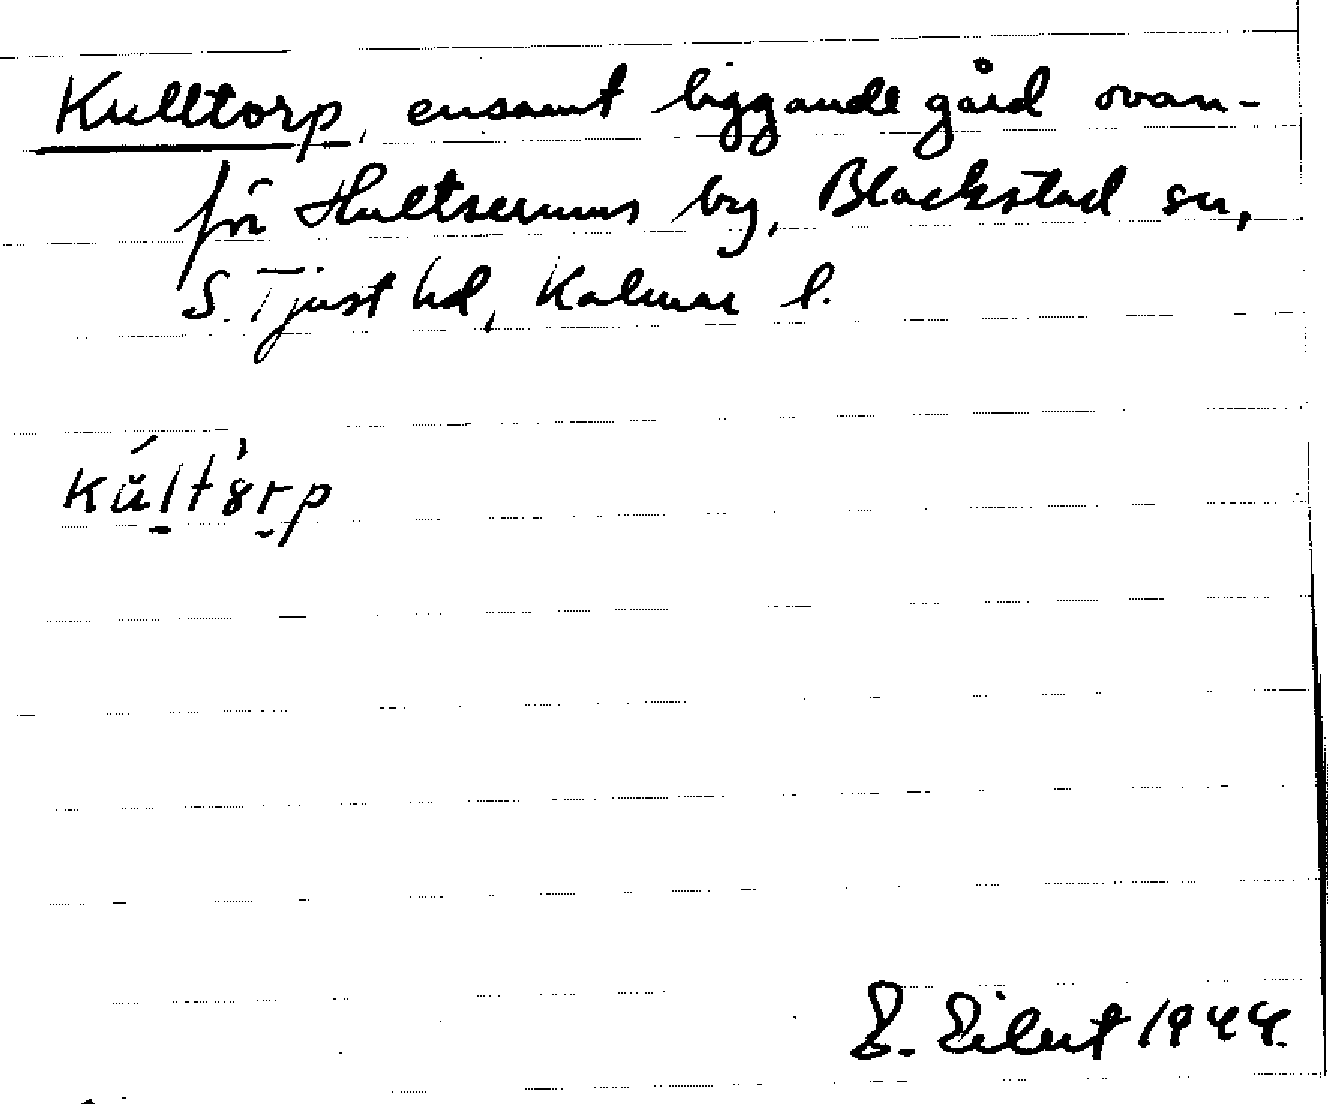 Kulltorp, ensamt liggande gård ovan-
för Hultserums by, Blackstad sn,
S. Tjust hd, Kalmar l.
1944.